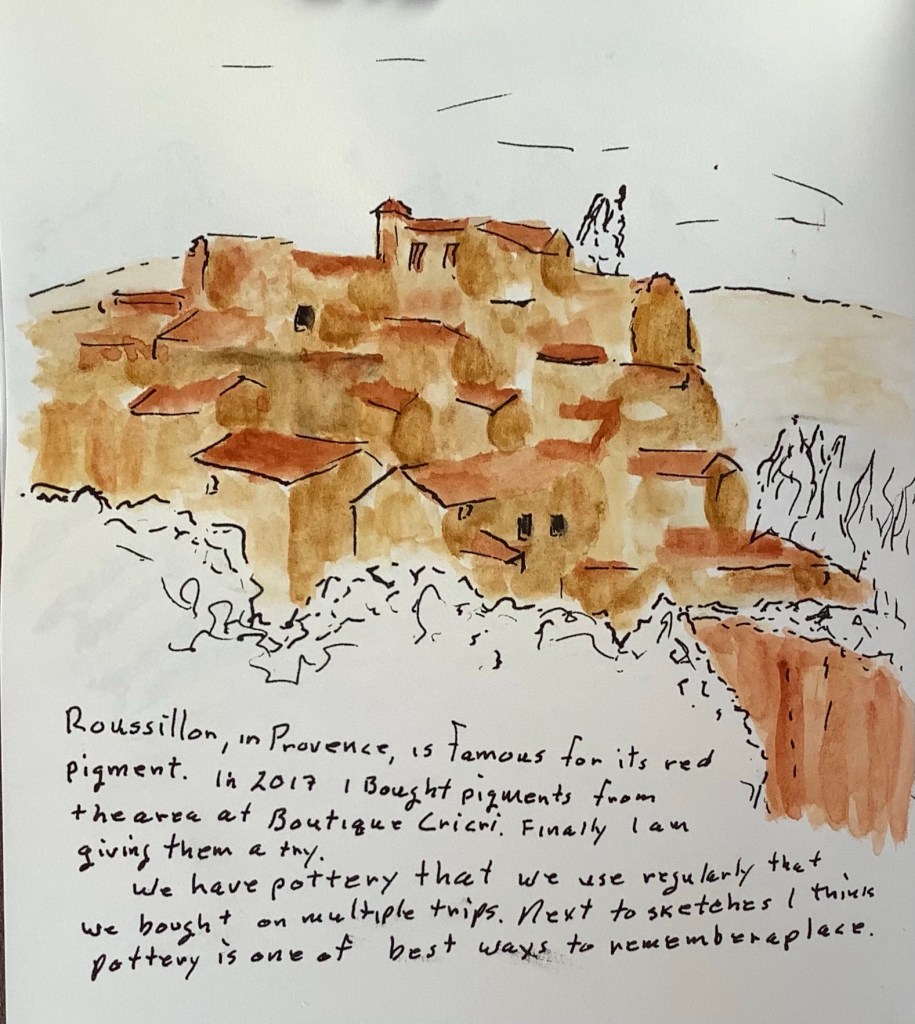 Roussillon, in Provence, is famous for its red
pigment. In 2017 I Bought pigments from
the area at Boutique Cricri. Finally I am
giving them a try.
We have pottery that we use regularly that
we bought on multiple trips. Next to sketches I think
pottery is one of best ways to remember a place.